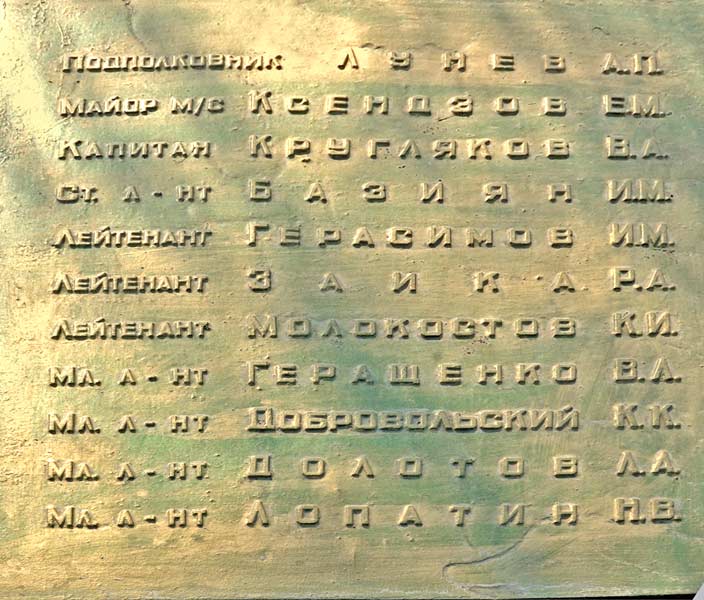 Подполковник Лунев А.П.
Майор м/с Ксендзов Е.М.
Капитан Кругляков В.А.
Ст. л-нт Базиян И.М.
Лейтенант Герасимов И.М.
Лейтенант Заика Р.А.
Лейтенант Молокостов К.И.
Мл. л-нт Геращенко В.А.
Мл. л-нт Добровольский К.К.
Мл. л-нт Долотов Л.А.
Мл. л-нт Лопатин Н.В.